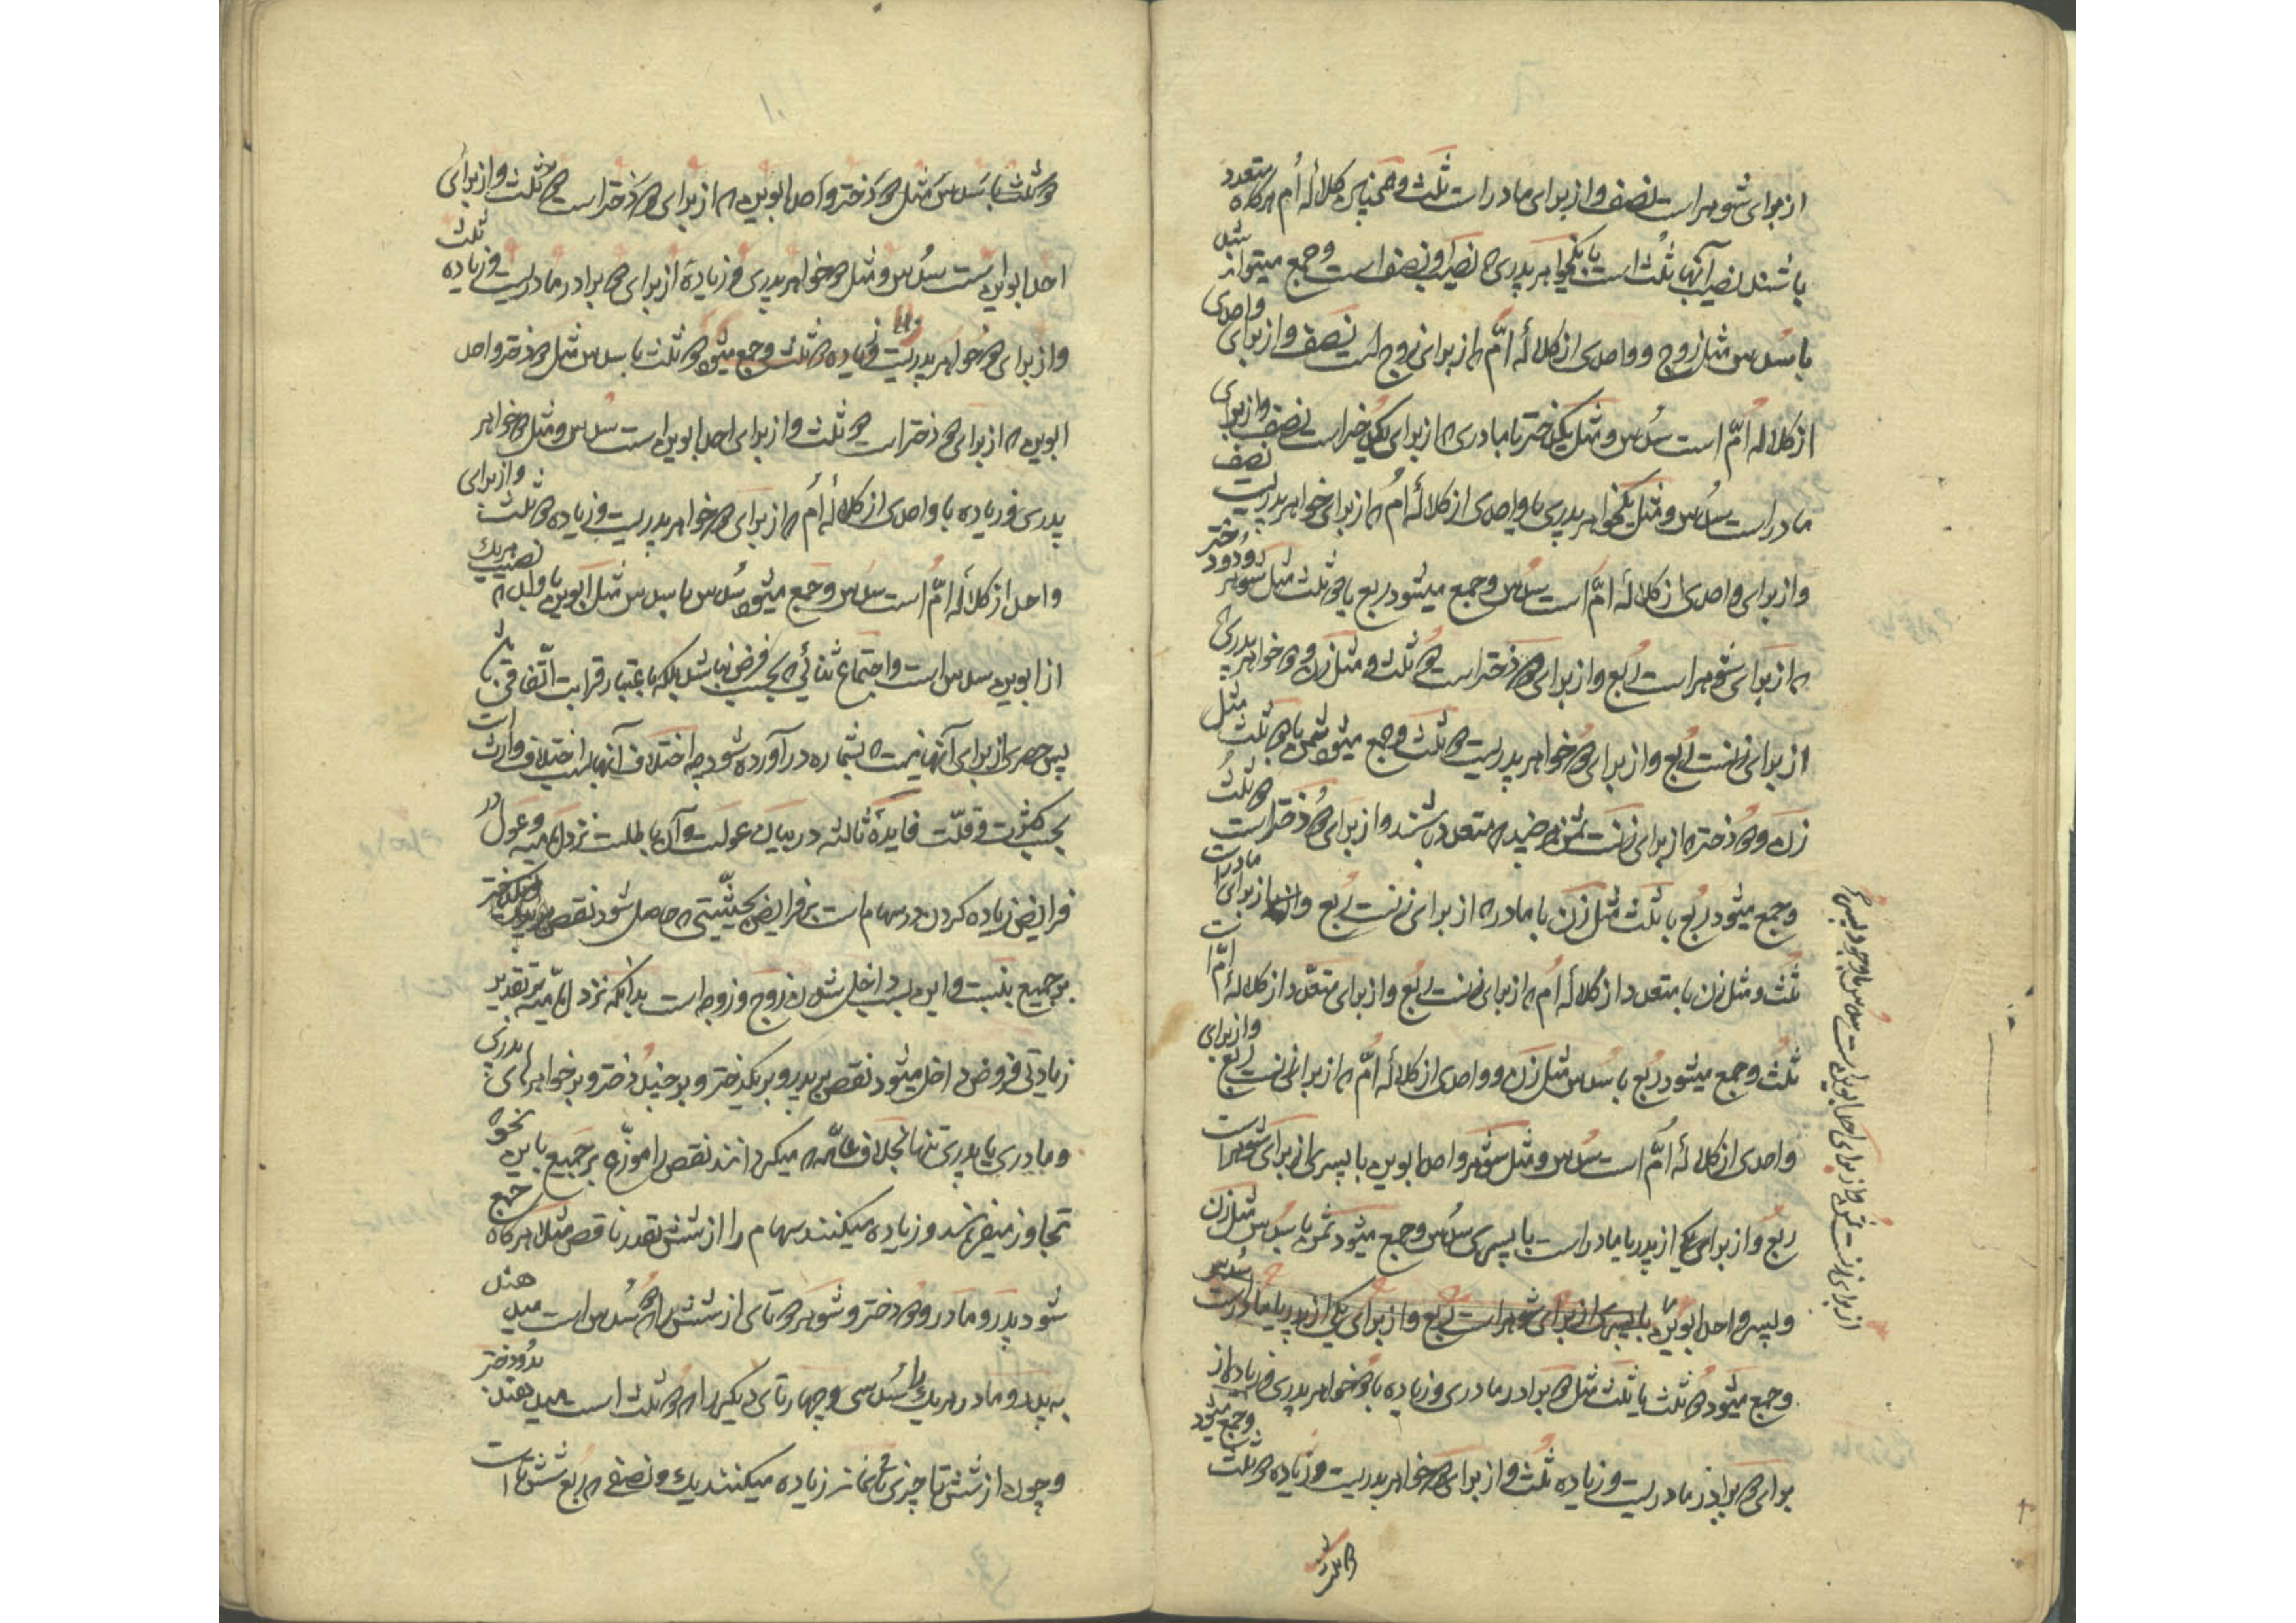 از برای شوهر است نصف و از برای مادر است ثلث و همچنین کلالهٔ اُم هرگاه متعدد
باشند نصیب آنها ثلث است با یکخواهر پدری که نصیب او نصف است و جمع میشود نصف
با سدس مثل زوج و واحدی از کلالهٔ امّ که از برای زوج است نصف و از برای واحدی
از کلاله امّ است سُدس و مثل یکدختر با مادری که از برای یکدختر است نصف و از برای
مادر است سُدس و مثل یکخواهر پدری با واحدی از کلالهٔ اُم که از برای خواهر پدریست نصف
و از برای واحدی از کلالهٔ امّ است سُدس و جمع میشود ربع با دو ثلث مثل شوهر و دو دختر
که از برای شوهر است رُبع و از برای دو دختر است دو ثلث و مثل زن و دو خواهر پدری که
از برای زنست رُبع و از برای دو خواهر پدریست دو ثلث و جمع میشود ثمن با دو ثلث مثل
زن و دو دختر که از برای زنست ثمن هر چند که متعدد باشند و از برای دو دختر است دو ثلث
و جمع میشود رُبع با ثلث مثل زن با مادر که از برای زنست رُبع و از برای مادر است
ثلث و مثل زن با متعدد از کلالهٔ اُم که از برای زنست رُبع و از برای متعدّد از کلالهٔ امّ است
ثلث و جمع میشود رُبع با سُدس مثل زن و واحدی از کلالهٔ امّ که از برای زنست رُبع و از برای
واحدی از کلالهٔ اُمّ است سُدس و مثل شوهر و احد ابوین با پسری از برای شوهر است
ربع و از برای یکی از پدر یا مادر است با پسری سُدس و جمع میشود ثمن با سُدس مثل زن
و پسر و احد ابوین با پسری از برای شوهر است رُبع و از برای یکی از پدر یا مادر است سُدس
از برای زنست ثمن و از برای احد ابوین است سدس با وجود پسر
و جمع میشود دو ثلث با ثلث مثل دو برادر مادری و زیاده با دو خواهر پدری و زیاده از
برای دو برادر مادریست و زیاده ثلث و از برای دو خواهر پدریست و زیاده دو ثلث و جمع میشود
دو ثلث
۱۰
دو ثلث با سدس مثل دو دختر و احد ابوین که از برای دو دختر است دو ثلث و از برای
احد ابوین است سُدس و مثل دو خواهر پدری و زیاده از برای دو برادر مادریست و زیاده ثلث
و از برای دو خواهر پدریست و زیاده دو ثلث و جمع میشود دو ثلث با سدس مثل دو دختر و احد
ابوین که از برای دو دختر است دو ثلث و از برای احد ابوین است سُدس و مثل دو خواهر
پدری و زیاده با واحدی از کلالهٔ اُم که از برای دو خواهر پدریست و زیاده دو ثلث و از برای
واحد از کلالهٔ امّ است سدس و جمع میشود سُدس با سدس مثل ابوین با ولد که نصیب هریک
از ابوین سدس است و اجتماع ثنائی که بحسب فرض نباشد بلکه باعتبار قرابت اتّفاقی باشد
پس حصری از برای آنها نیست که بشماره در آورده شود چه اختلاف آنها بسبب اختلاف وارث است
بحسب کثرت و قلّت فایدهٔ ثالثه در بیان عولست و آن باطلست نزد امامیه و عول در
فرایض زیاده کردن در سهام است بر فرایض بحیثیّتی که حاصل شود نقص
بر جمیع بنسبت و این بسبب داخل شدن زوج و زوجه است بدانکه نزد امامیّه بر تقدیر
زیادتی فروض داخل میشود نقص بر پدر و بر یکدختر و بر چند دختر و بر خواهرهای پدری
و مادری یا پدری تنها بخلاف عامّه که میگردانند نقص را موزّع بر جمیع باین نحو که
تجاوز میفرمایند و زیاده میکنند سهام را از شش بقدر ناقص مثلا هرگاه جمع
شود پدر و مادر و دو دختر و شوهر دو تای از شش را که دو سُدس است میدهند
به پدر و مادر هریک را سُدسی و چهار تای دیگر را که دو ثلث است میدهند بدو دختر
و چون از شش تا چیزی نماند زیاده میکنند یک و نصفی که رُبع شش تا است